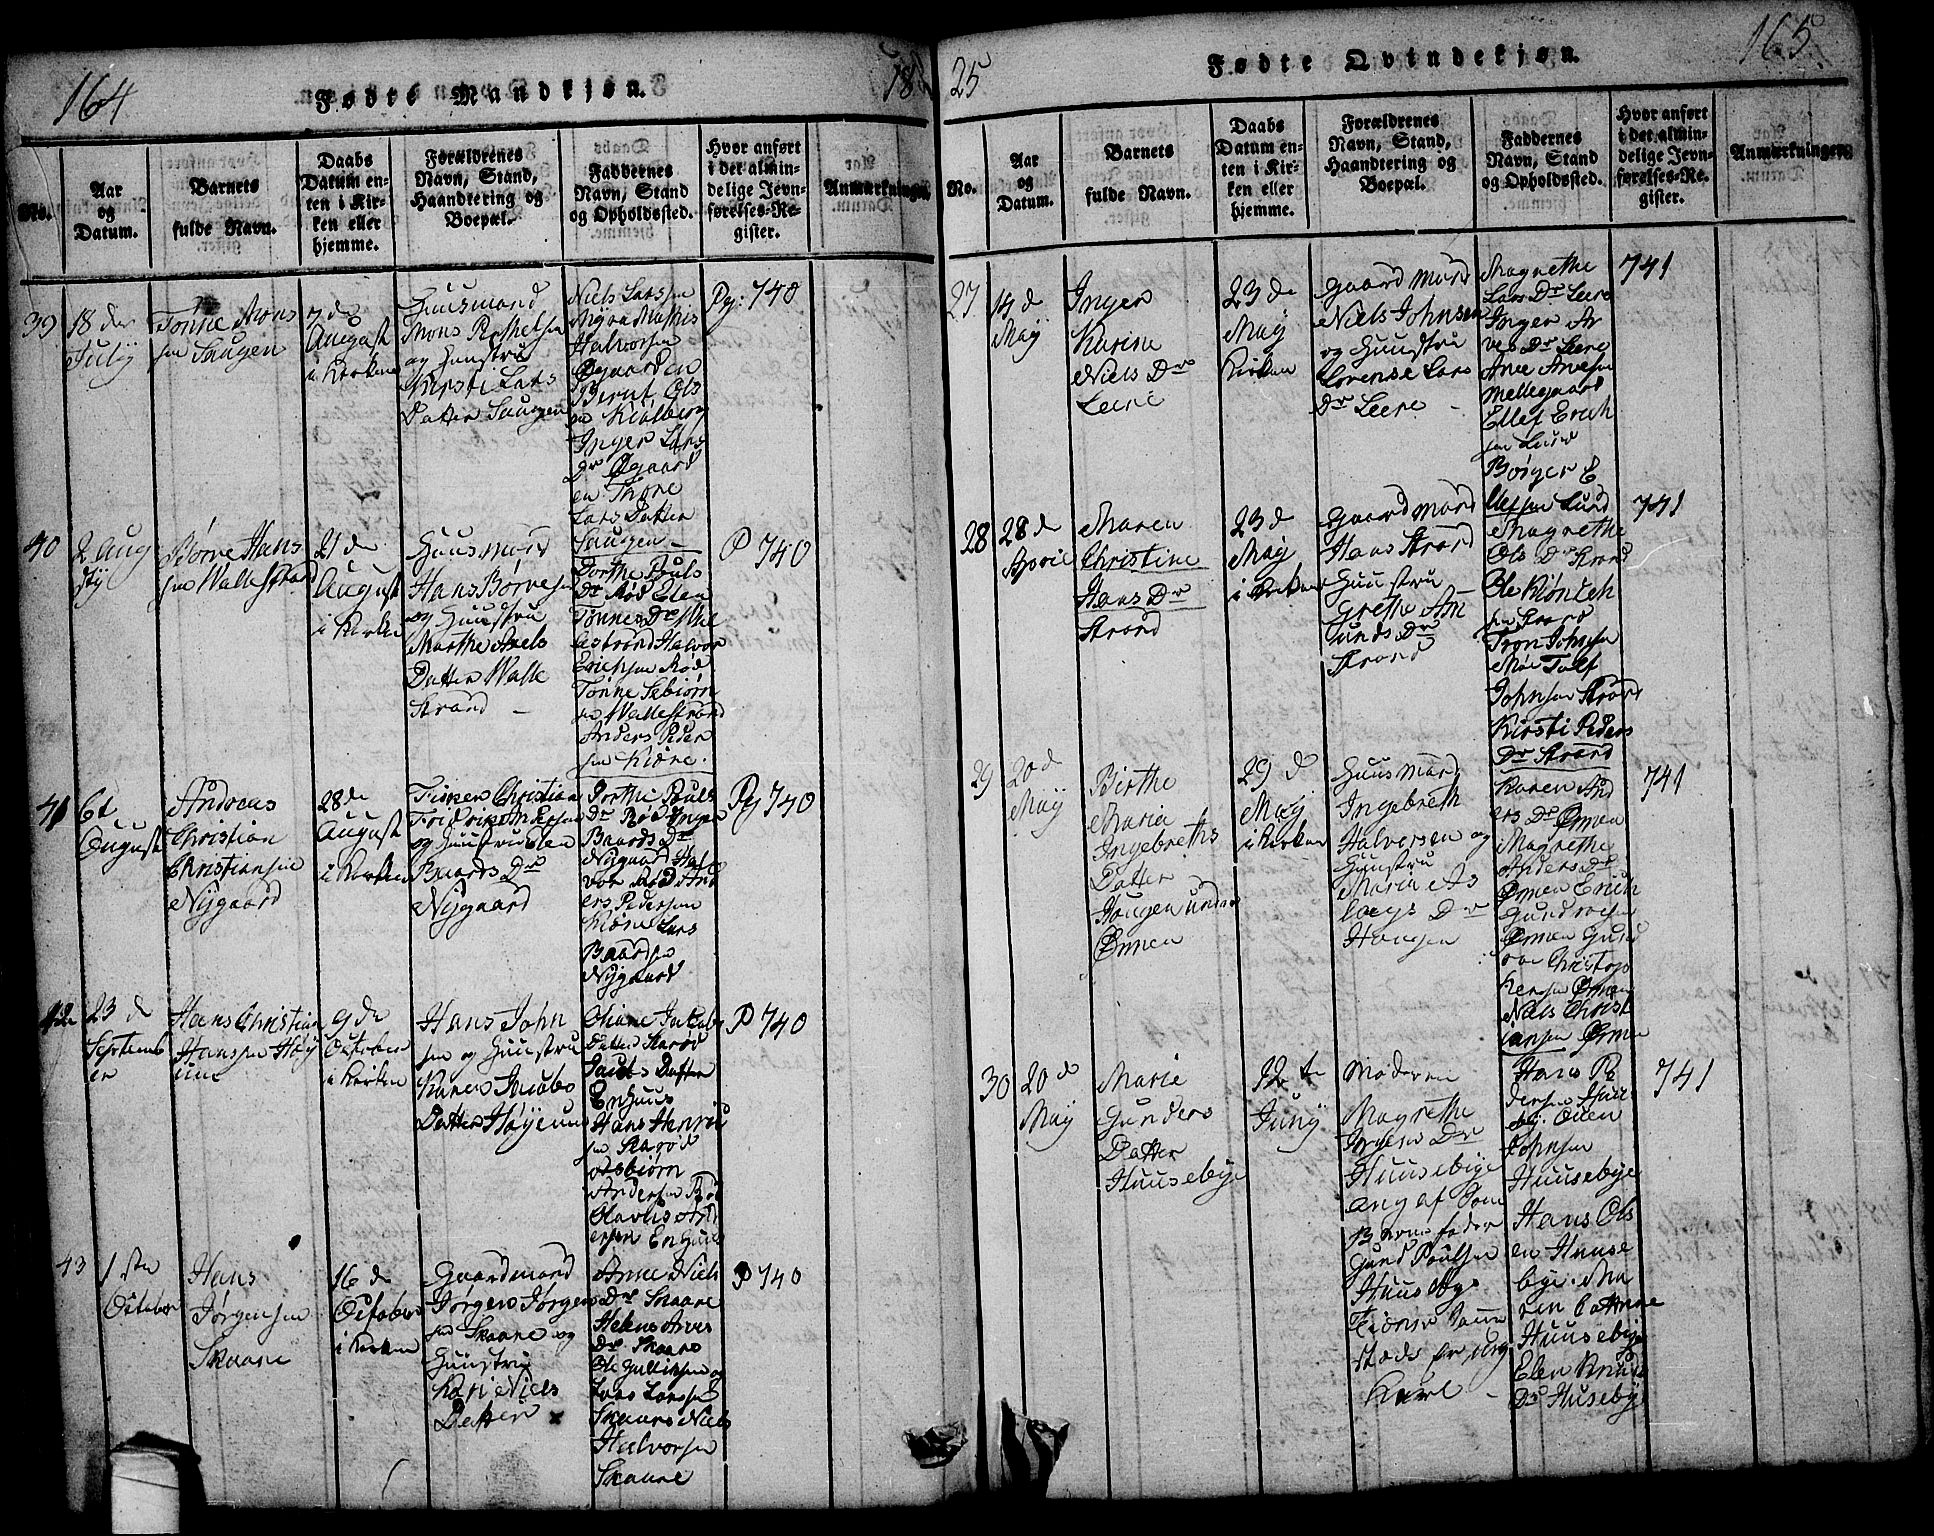 164
Fødte Mandkjøn.
18
No.
Aar og Datum.
Barnets fulde Navn.
Daabs Datum enten i Kirken eller hjemme.
Forældrenes Navn, Stand, Haandtering og Boepæl.
Faddernes Navn, Stand og Opholdssted.
Hvor anført i det almindelige Jevnførelses-Register.
Anmærkninger.
39
18 de
July
Tønne Mons
sen Saugen
7 de
August
i Kirken
Huusmand
Mons
og Huustru
Kirsti Lars
Datter Saugen
Niels Larssen
Halvorsen
Øgaarden
Bernt Ols
en Kiølberg
Inger Lars
Dr Øgaard
en Thore
Lars Datter
Saugen
Pg: 740
40
2 Aug
sty
Børre Hans
sen Wallestrand
21 de
August
i Kirken
Huusmand
Hans Børresen
og Huustru
Marthe Axels
Datter Walle
Strand
Dorthe Pouls
Dr Rød Elen
Tønnes Dr Wal
lestrand Halvor
Erichsen Rød
Tønne Sebiørn
sen Wallestrand
Anders Peder
sen Kiøre.
P 740
41
6t
August
Andreas
Christian
Christiansen
Nygaard
28 de
August
i Kirken
Fisker Christian
Fridrik Andersen
og Huustru Elen
Baards Dr
Nygaard
Dorthe Pouls
Dr Rød Inger
Baards Dr
Nygaard Hal
vor Rød And
ers Pedersen
Kiøre Lars
Baardsen
Nygaard
Pg 740
42
23 de
Septemb
er
Hans Christian
Hansen Høy
uun
9 de
October
i Kirken
Hans John
sen og Huustru
Karen Jacobs
Datter Høyeuun
Oliane Jacobs
Datter Skarød
Datter
Enhuus
Hans Henric
sen Skarød
Asbiørn
Andersen Rød
Olavus And
ersen Enhuus
P 740
43
1 ste
October
Hans
Jørgensen
Skaare
16 de
October
i Kirken
Gaardmand
Jørgen Jørgen
sen Skaare og
Huustru
Kari Niels
Datter
Anne Niels
Dr Skaare
Helene Arves
Dr Skaare
Ole Gulliksen og
Lars Larssen
Skaare Niels
Halvorsen
Skaare
P 740
25
Fødte Qvindekjøn.
165
No.
Aar og Datum.
Barnets fulde Navn.
Daabs Datum enten i Kirken eller hjemme.
Forældrenes Navn, Stand, Haandtering og Boepæl.
Faddernes Navn, Stand og Opholdssted.
Hvor anført i det almindelige Jevnførelses-Register.
Anmærkninger.
27
14 d
May
Inger
Karine
Niels Dr
Leere
23 de
May
Kirken
Gaard Mand
Niels Johnsen
og Huustru
Lorense Lars
Dr Leere
Magrethe
Lars Dr Leere
Inger Ar
ves Dr Leere
Arve Arvesen
Mellegaard
Ellef Erich
sen Lund
Børger E
llefsen Lund
741
28
28 d
April
Maren
Christine
Hans Dr
Strand
23 d
May
i Kirken
Gaard Mand
Hans Strand
Huustru
Grethe Am
unds Dr
Strand
Magrethe
Ols Dr Strand
Ole
sen Strand
Tron Johnsen
Moe Tolf
Johnsen Strand
Kirsti Peders
Dr Strand
741
29
20 d
May
Birthe
Maria
Ingebreths
Datter
Haugen under
Ørmen
29 d
May
i Kirken
Huusmand
Ingebreth
Halversen og
Huustru
Maria As
laugs Dr
Haugen
Karen And
ers Dr Ørmen
Magrethe
Anders Dr
Ørmen Erich
Gundersen
Ørmen Gund
Christop
hersen Ørmen
Niels Christ
iansen Ørmen
741
30
20 d
May
Marie
Gunders
Datter
Huusebye
12 te
Juny
Moderen
Magrethe
Jørgens Dr
Huusebye
ang af Som
Barnefader
Gund Poulsen
Huusbye
Tieniste Samme
stæds for ung
Karl
Hans Pe
dersen Huse
by. Even
Johnsen
Huusebye
Hans Ols
en Huuse
bye. Ma
ren Cathrine
Huusebye
Elen Knuds
Dr Husebye
741